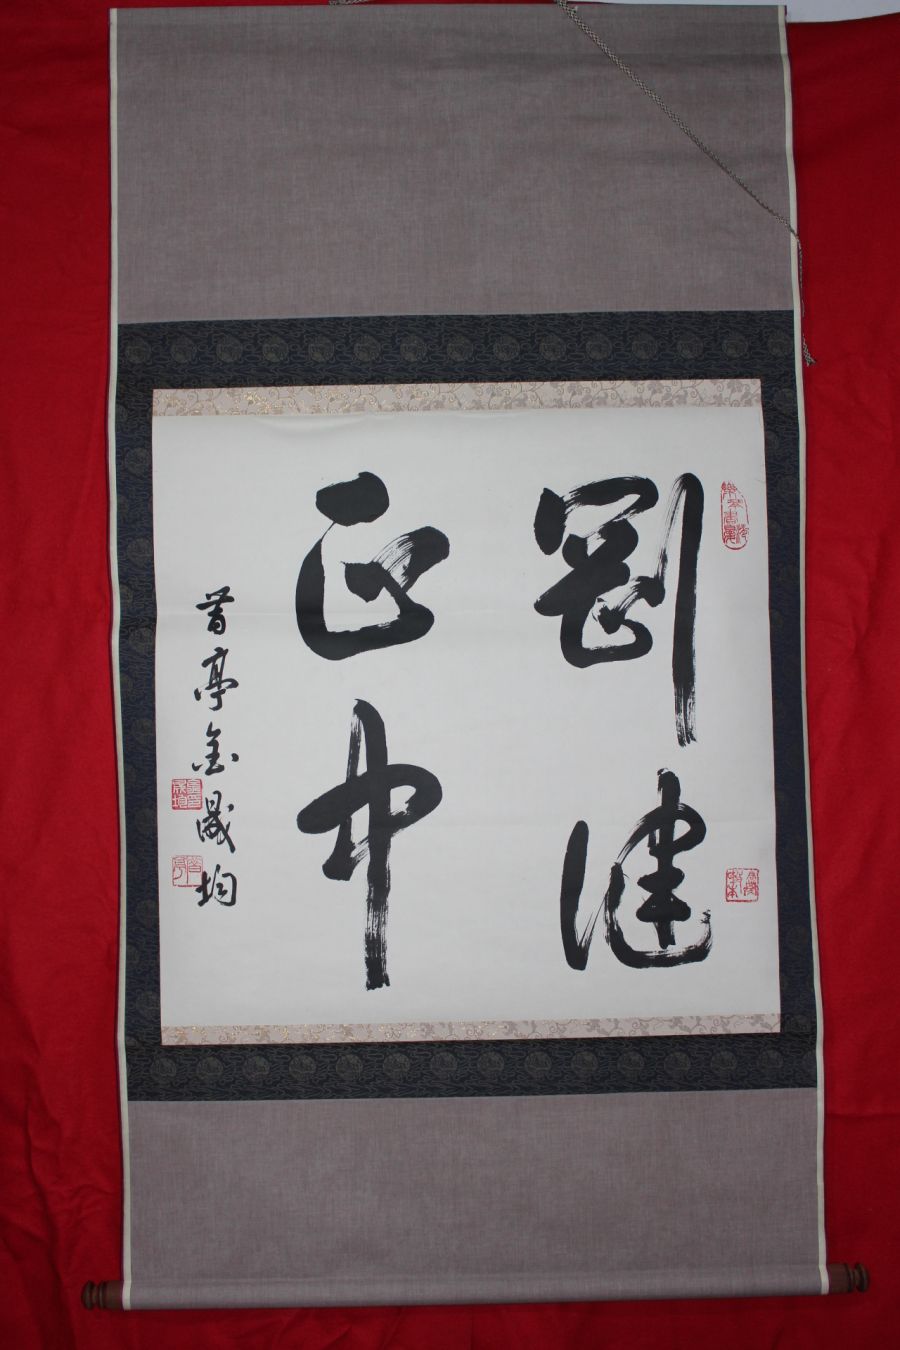 剛健
正中
晋亭金晟均